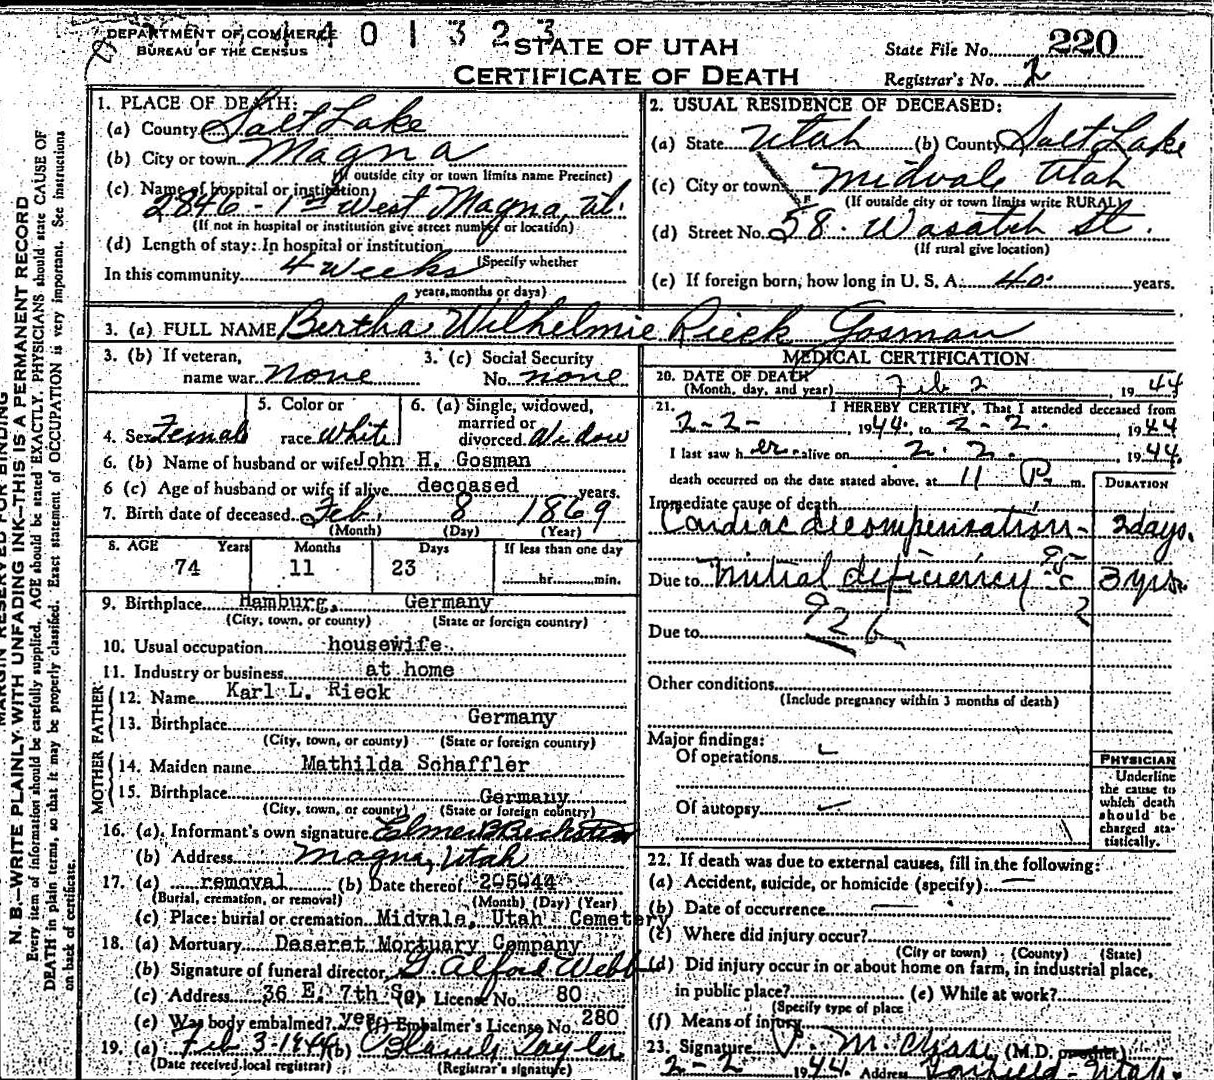 DEPARTMENT OF COMMERCE
BUREAU OF THE CENSUS
401323
STATE OF UTAH
CERTIFICATE OF DEATH
State File No. 220
Registrar's No. 2
1. PLACE OF DEATH:
(a) County Salt Lake
(b) City or town Magna
(If outside city or town limits name Precinct)
(c) Name of hospital or institution:
2846 - 1st West Magna, Ut.
(If not in hospital or institution give street number or location)
(d) Length of stay: In hospital or institution
(Specify whether
In this community 4 weeks
years, months or days)
2. USUAL RESIDENCE OF DECEASED:
(a) State Utah (b) County Salt Lake
(c) City or town Midvale Utah
(If outside city or town limits write RURAL)
(d) Street No. 58. Wasatch St.
(If rural give location)
(e) If foreign born, how long in U. S. A. 40 years.
3. (a) FULL NAME Bertha Wilhelmie Rieck Gosman
3. (b) If veteran,
name war none
3. (c) Social Security
No. none
4. Sex Female
5. Color or
race white
6. (a) Single, widowed,
married or
divorced Widow
6. (b) Name of husband or wife John H. Gosman
6 (c) Age of husband or wife if alive deceased years.
7. Birth date of deceased Feb. 8 1869
(Month) (Day) (Year)
8. AGE Years Months Days If less than one day
74 11 23 hr. min.
9. Birthplace Hamburg, Germany
(City, town, or county) (State or foreign country)
10. Usual occupation housewife
11. Industry or business at home
FATHER
12. Name Karl L. Rieck
13. Birthplace Germany
(City, town, or county) (State or foreign country)
MOTHER
14. Maiden name Mathilda Schaffler
15. Birthplace Germany
(City, town, or county) (State or foreign country)
16. (a). Informant's own signature Elmer Beckstead
(b) Address Magna, Utah
17. (a) removal (b) Date thereof 205044
(Burial, cremation, or removal) (Month) (Day) (Year)
(c) Place: burial or cremation Midvale, Utah Cemetery
18. (a) Mortuary Deseret Mortuary Company
(b) Signature of funeral director G. Alford Webb
(c) Address 36 E. 7th So. License No. 80
(e) Was body embalmed? yes (f) Embalmer's License No. 280
19. (a) Feb 3-1944 (b) Taylor
(Date received local registrar) (Registrar's signature)
MEDICAL CERTIFICATION
20. DATE OF DEATH
(Month, day, and year) Feb 2 1944
21. I HEREBY CERTIFY, That I attended deceased from
2-2- 1944. to 2-2. 1944
I last saw her alive on 2. 2. 1944.
death occurred on the date stated above, at 11 P. m.
DURATION
Immediate cause of death
Cardiac decompensation - 2 days.
Due to Mitral deficiency 3 yrs.
95 c
2
92 b
Due to
Other conditions
(Include pregnancy within 3 months of death)
Major findings:
Of operations
Of autopsy
PHYSICIAN
Underline
the cause to
which death
should be
charged sta-
tistically.
22. If death was due to external causes, fill in the following:
(a) Accident, suicide, or homicide (specify)
(b) Date of occurrence
(c) Where did injury occur?
(City or town) (County) (State)
(d) Did injury occur in or about home on farm, in industrial place,
in public place? (e) While at work?
(Specify type of place
(f) Means of injury
23. Signature M. (M.D.
2-2 1944. Address Garfield - Utah.
MARGIN RESERVED FOR BINDING
N. B.—WRITE PLAINLY WITH UNFADING INK—THIS IS A PERMANENT RECORD
Every item of information should be carefully supplied. AGE should be stated EXACTLY. PHYSICIANS should state CAUSE OF
DEATH in plain terms, so that it may be properly classified. Exact statement of OCCUPATION is very important. See instructions
on back of certificate.